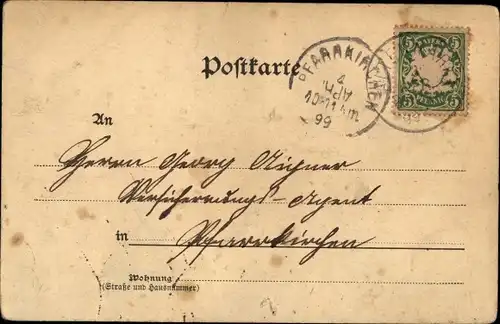 Postkarte
PFARRKIRCHEN
2
APR.
10-11 V.M.
99
5 5
5 5
An
Herrn Georg Aigner
Versicherungs-Agent
in Pfarrkirchen
Wohnung
(Straße und Hausnummer)